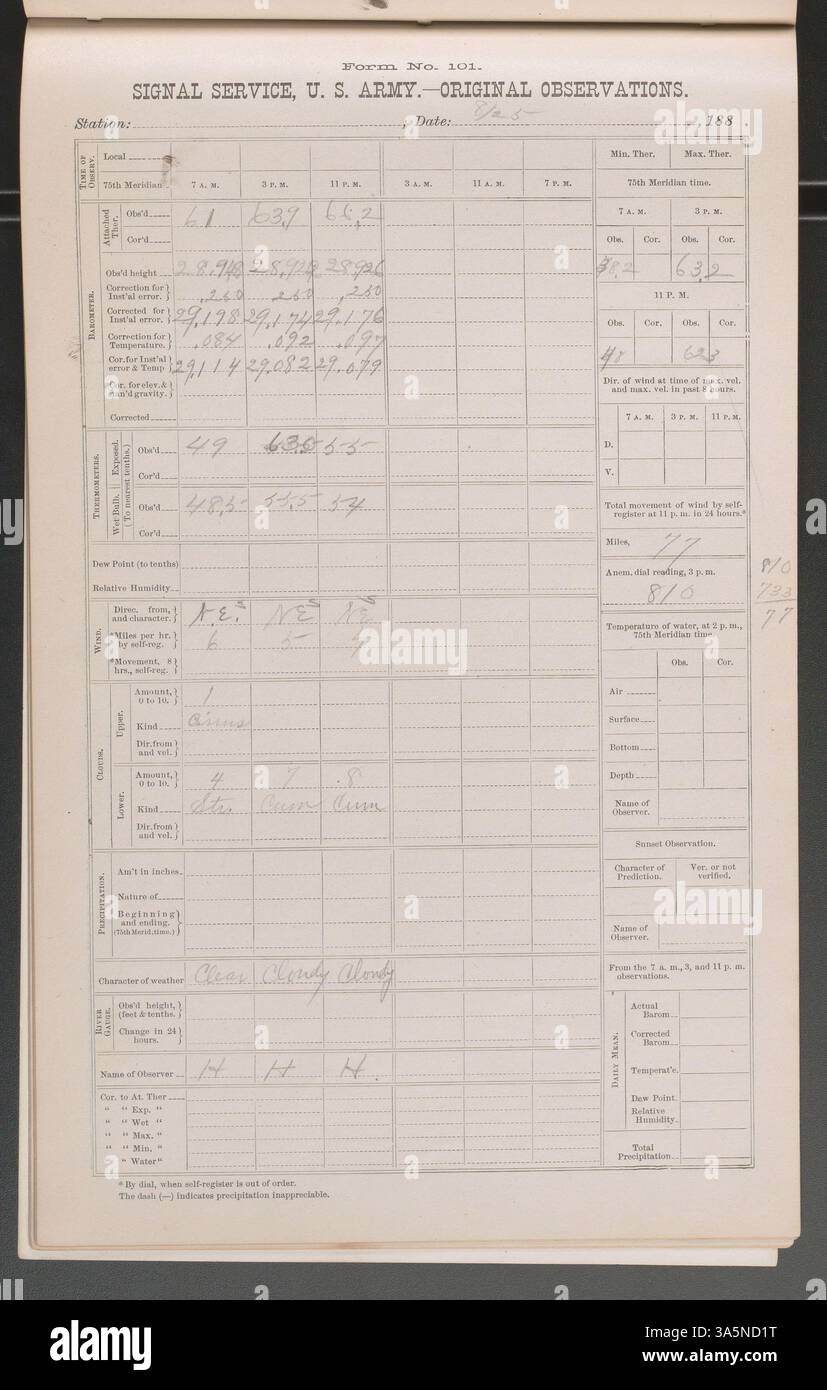 Form No. 101.
SIGNAL SERVICE, U. S. ARMY.—ORIGINAL OBSERVATIONS.
Station: , Date: 8/25 , 188 .
TIME OF OBSERV.
Local
75th Meridian 7 A. M. 3 P. M. 11 P. M. 3 A. M. 11 A. M. 7 P. M.
BAROMETER.
Attached Ther.
Obs'd 61 63.9 66.2
Cor'd
Obs'd height 28.948 28.923 28.926
Correction for Inst'al error. .250 250 .250
Corrected for Inst'al error. 29.198 29.174 29.176
Correction for Temperature. .084 .092 .097
Cor. for Inst'al error & Temp 29.114 29.082 29.079
Cor. for elev. & han'd gravity.
Corrected
THERMOMETERS.
Exposed.
(To nearest tenths.)
Obs'd 49 63.5 55
Cor'd
Wet Bulb.
Obs'd 48.5 55.5 54
Cor'd
Dew Point (to tenths)
Relative Humidity
WIND.
Direc. from, and character. N.E. NE NE
*Miles per hr. by self-reg. 6 5
*Movement, 8 hrs., self-reg.
CLOUDS.
Upper.
Amount, 0 to 10. 1
Kind Cirrus
Dir. from and vel.
Lower.
Amount, 0 to 10. 4 7 8
Kind Str. Cum Cum
Dir. from and vel.
PRECIPITATION.
Am't in inches.
Nature of
Beginning and ending. (75th Merid. time.)
Character of weather Clear Cloudy Cloudy
RIVER GAUGE.
Obs'd height, (feet & tenths.)
Change in 24 hours.
Name of Observer H H H.
Cor. to At. Ther
" " Exp. "
" " Wet "
" " Max. "
" " Min. "
" Water"
* By dial, when self-register is out of order.
The dash (—) indicates precipitation inappreciable.
Min. Ther. Max. Ther.
75th Meridian time.
7 A. M. 3 P. M.
Obs. Cor. Obs. Cor.
38.2 63.2
11 P. M.
Obs. Cor. Obs. Cor.
48 623
Dir. of wind at time of max. vel. and max. vel. in past 8 hours.
7 A. M. 3 P. M. 11 P. M.
D.
V.
Total movement of wind by self-register at 11 p. m. in 24 hours.*
Miles, 77
Anem. dial reading, 3 p. m.
810
810
733
77
Temperature of water, at 2 p. m., 75th Meridian time
Obs. Cor.
Air
Surface
Bottom
Depth
Name of Observer.
Sunset Observation.
Character of Prediction. Ver. or not verified.
Name of Observer.
From the 7 a. m., 3, and 11 p. m. observations.
DAILY MEAN.
Actual Barom
Corrected Barom
Temperat'e.
Dew Point.
Relative Humidity.
Total Precipitation
alamy
Image ID: 3A5ND1T
www.alamy.com